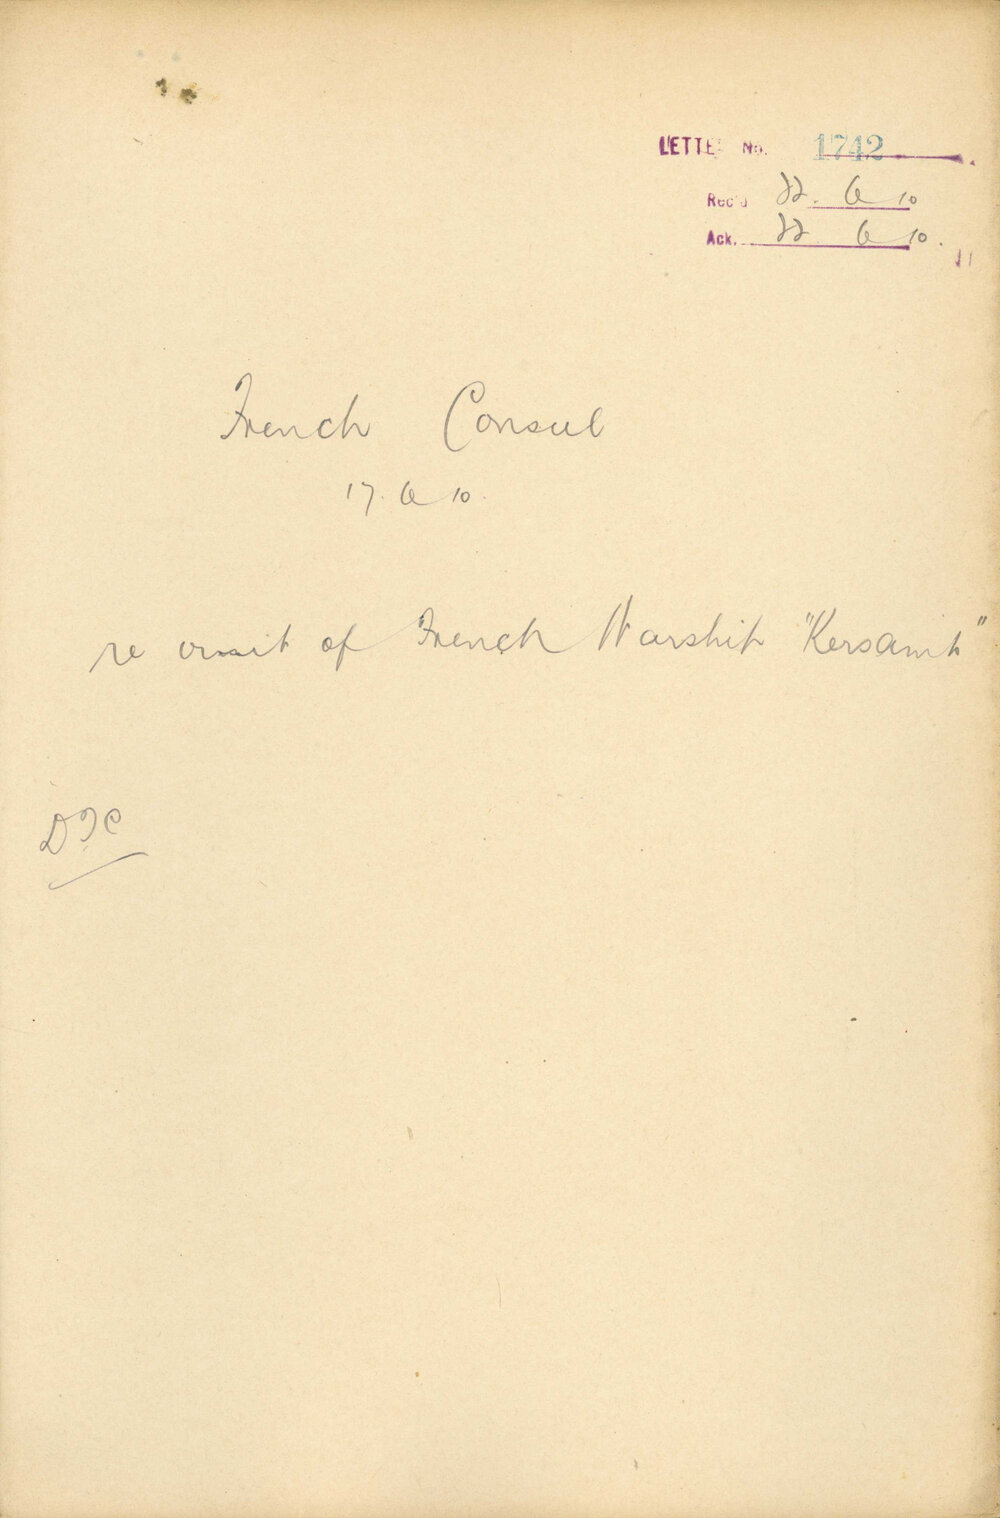 LETTER No. 1742
Rec'd 22. 6 10
Ack. 22. 6 10.
French Consul
17. 6 10.
re visit of French Warship "Kersaint"
DTC